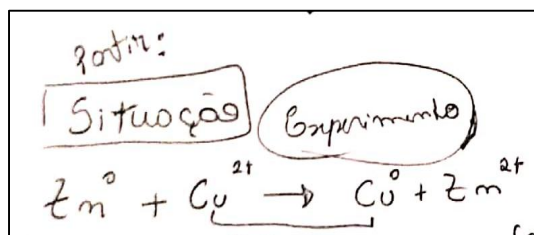 Partir:
Situação Experimento
Zn⁰ + Cu²⁺ → Cu⁰ + Zn²⁺